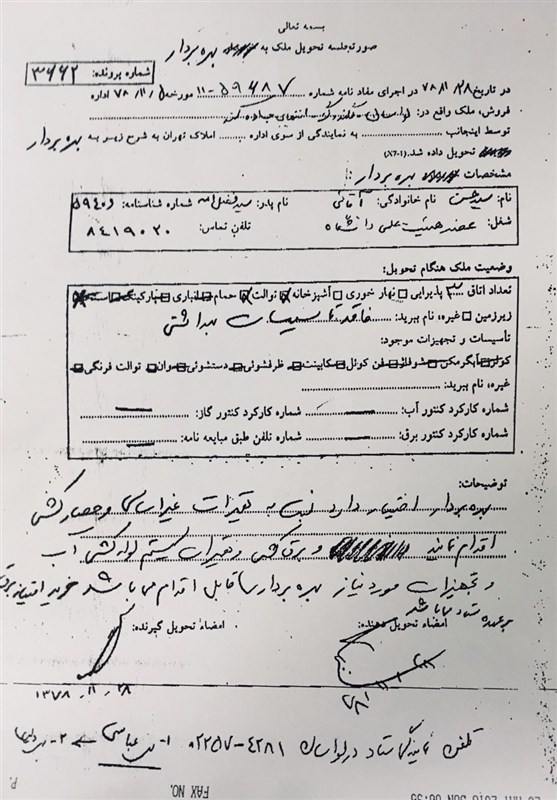 بسمه تعالی
صورتجلسه تحویل ملک به بهره بردار
شماره پرونده: ۳۶۶۲
در تاریخ ۷۸/۱۱/۲۸ در اجرای مفاد نامه شماره ۵۹۴۸۷-۱۱ مورخه ۷۸/۱۱/۵ اداره
فروش، ملک واقع در:
توسط اینجانب به نمایندگی از سوی اداره املاک تهران به شرح زیر به بهره بردار
تحویل داده شد. (X7-1)
مشخصات بهره بردار:
نام: سید حسن نام خانوادگی: آقائی نام پدر: سید فضل اله شماره شناسنامه: ۵۹۴۰۶
شغل: عضو هیئت علمی دانشگاه تلفن تماس: ۸۴۱۹۰۲۰
وضعیت ملک هنگام تحویل:
تعداد اتاق پذیرایی نهار خوری آشپزخانه توالت حمام انباری پارکینگ
زیرزمین غیره، نام ببرید: فاقد تاسیسات بهداشتی
تأسیسات و تجهیزات موجود:
کولر آبگرمکن شوفاژ فن کوئل کابینت ظرفشوئی دستشوئی وان توالت فرنگی
غیره، نام ببرید:
شماره کارکرد کنتور آب: شماره کارکرد کنتور گاز:
شماره کارکرد کنتور برق: شماره تلفن طبق مبایعه نامه:
توضیحات:
بهره بردار اختیار دارد نسبت به تغییرات غیراساسی و حصارکشی
اقدام نماید و برق کشی و تغییرات سیستم لوله کشی آب
و تجهیزات مورد نیاز بهره بردار قابل اقدام می باشد خرید امتیاز برق
بر عهده ستاد می باشد
امضاء تحویل دهنده: امضاء تحویل گیرنده:
۷۸/۱۱/۲۸
۱۳۷۸/۱۱/۲۸
تلفن نمایندگی ستاد در لواسان ۴۲۸۱-۰۲۲۵۷ ۱- عباسی ۲-
FAX NO.
P.